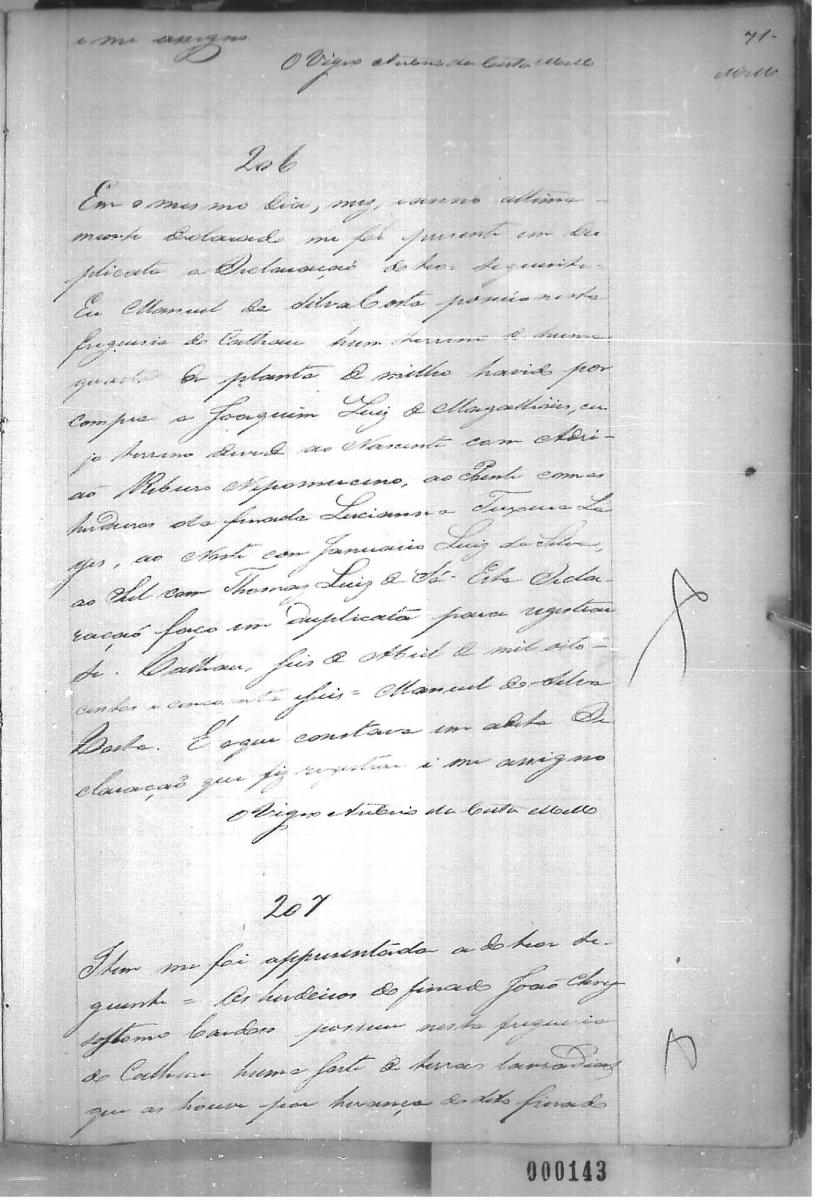 e me assigno
71-
O Vigrº Antonio da Costa Mello
Mello
206
Em o mesmo dia, mez, e anno ultima-
mente declarado me foi presente em du
plicata a Declaraçaõ do teor seguinte-
Eu Manuel da Silva Costa possúo nesta
freguesia do Calhau hum terreno de huma
quarta de planta de milho havido por
compra a Joaquim Luiz de Magalhães, cu
jo terreno divide ao Nascente com Adri-
aõ Ribeiro Nepomuceno, ao Poente com os
herdeiros da finada Lucianna Teixeira La
ges, ao Norte com Januario Luiz da Silva,
ao Sul com Thomaz Luiz de Sá- Esta Decla-
raçaõ faço em duplicata para registrar
se. Calhau, seis de Abril de mil oito-
centos e cincoenta e seis = Manuel da Silva
Costa. É o que constava em a dita De
claraçaõ que fiz registrar e me assigno
O Vigrº Antonio da Costa Mello
207
Item me foi appresentada a do teor se-
guinte = Os herdeiros do finado Joaõ Chry
sostomo Cardoso possuem nesta freguesia
do Calhau huma parte de terras lavradias
que as houve por herança do dito finado
000143